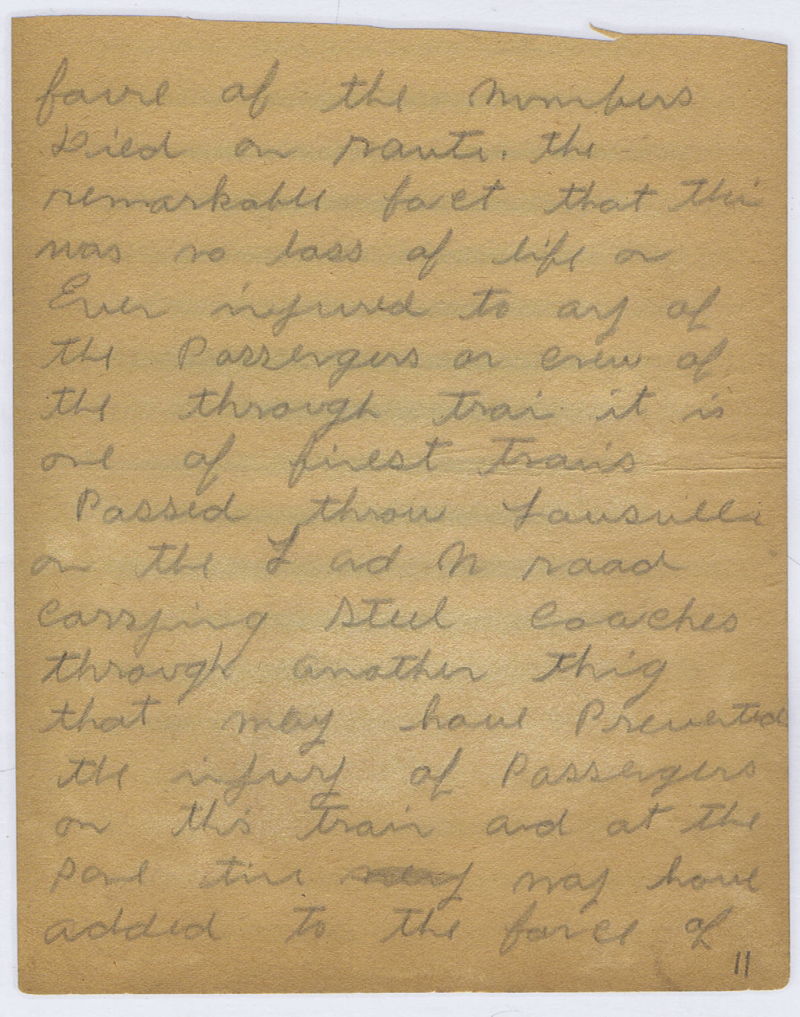 foure of the nmmbers
Died on raute. the
remarkable fact that thei
was no loss of life or
Ever injured to any of
the Passengers or crew of
the through train it is
one of finest trains
Passed throw Lousville
on the L and N road
Carrying Steel Coaches
through another thig
that may have Prevented
the injury of Passengers
on this train and at the
same time may have
added to the force of
11